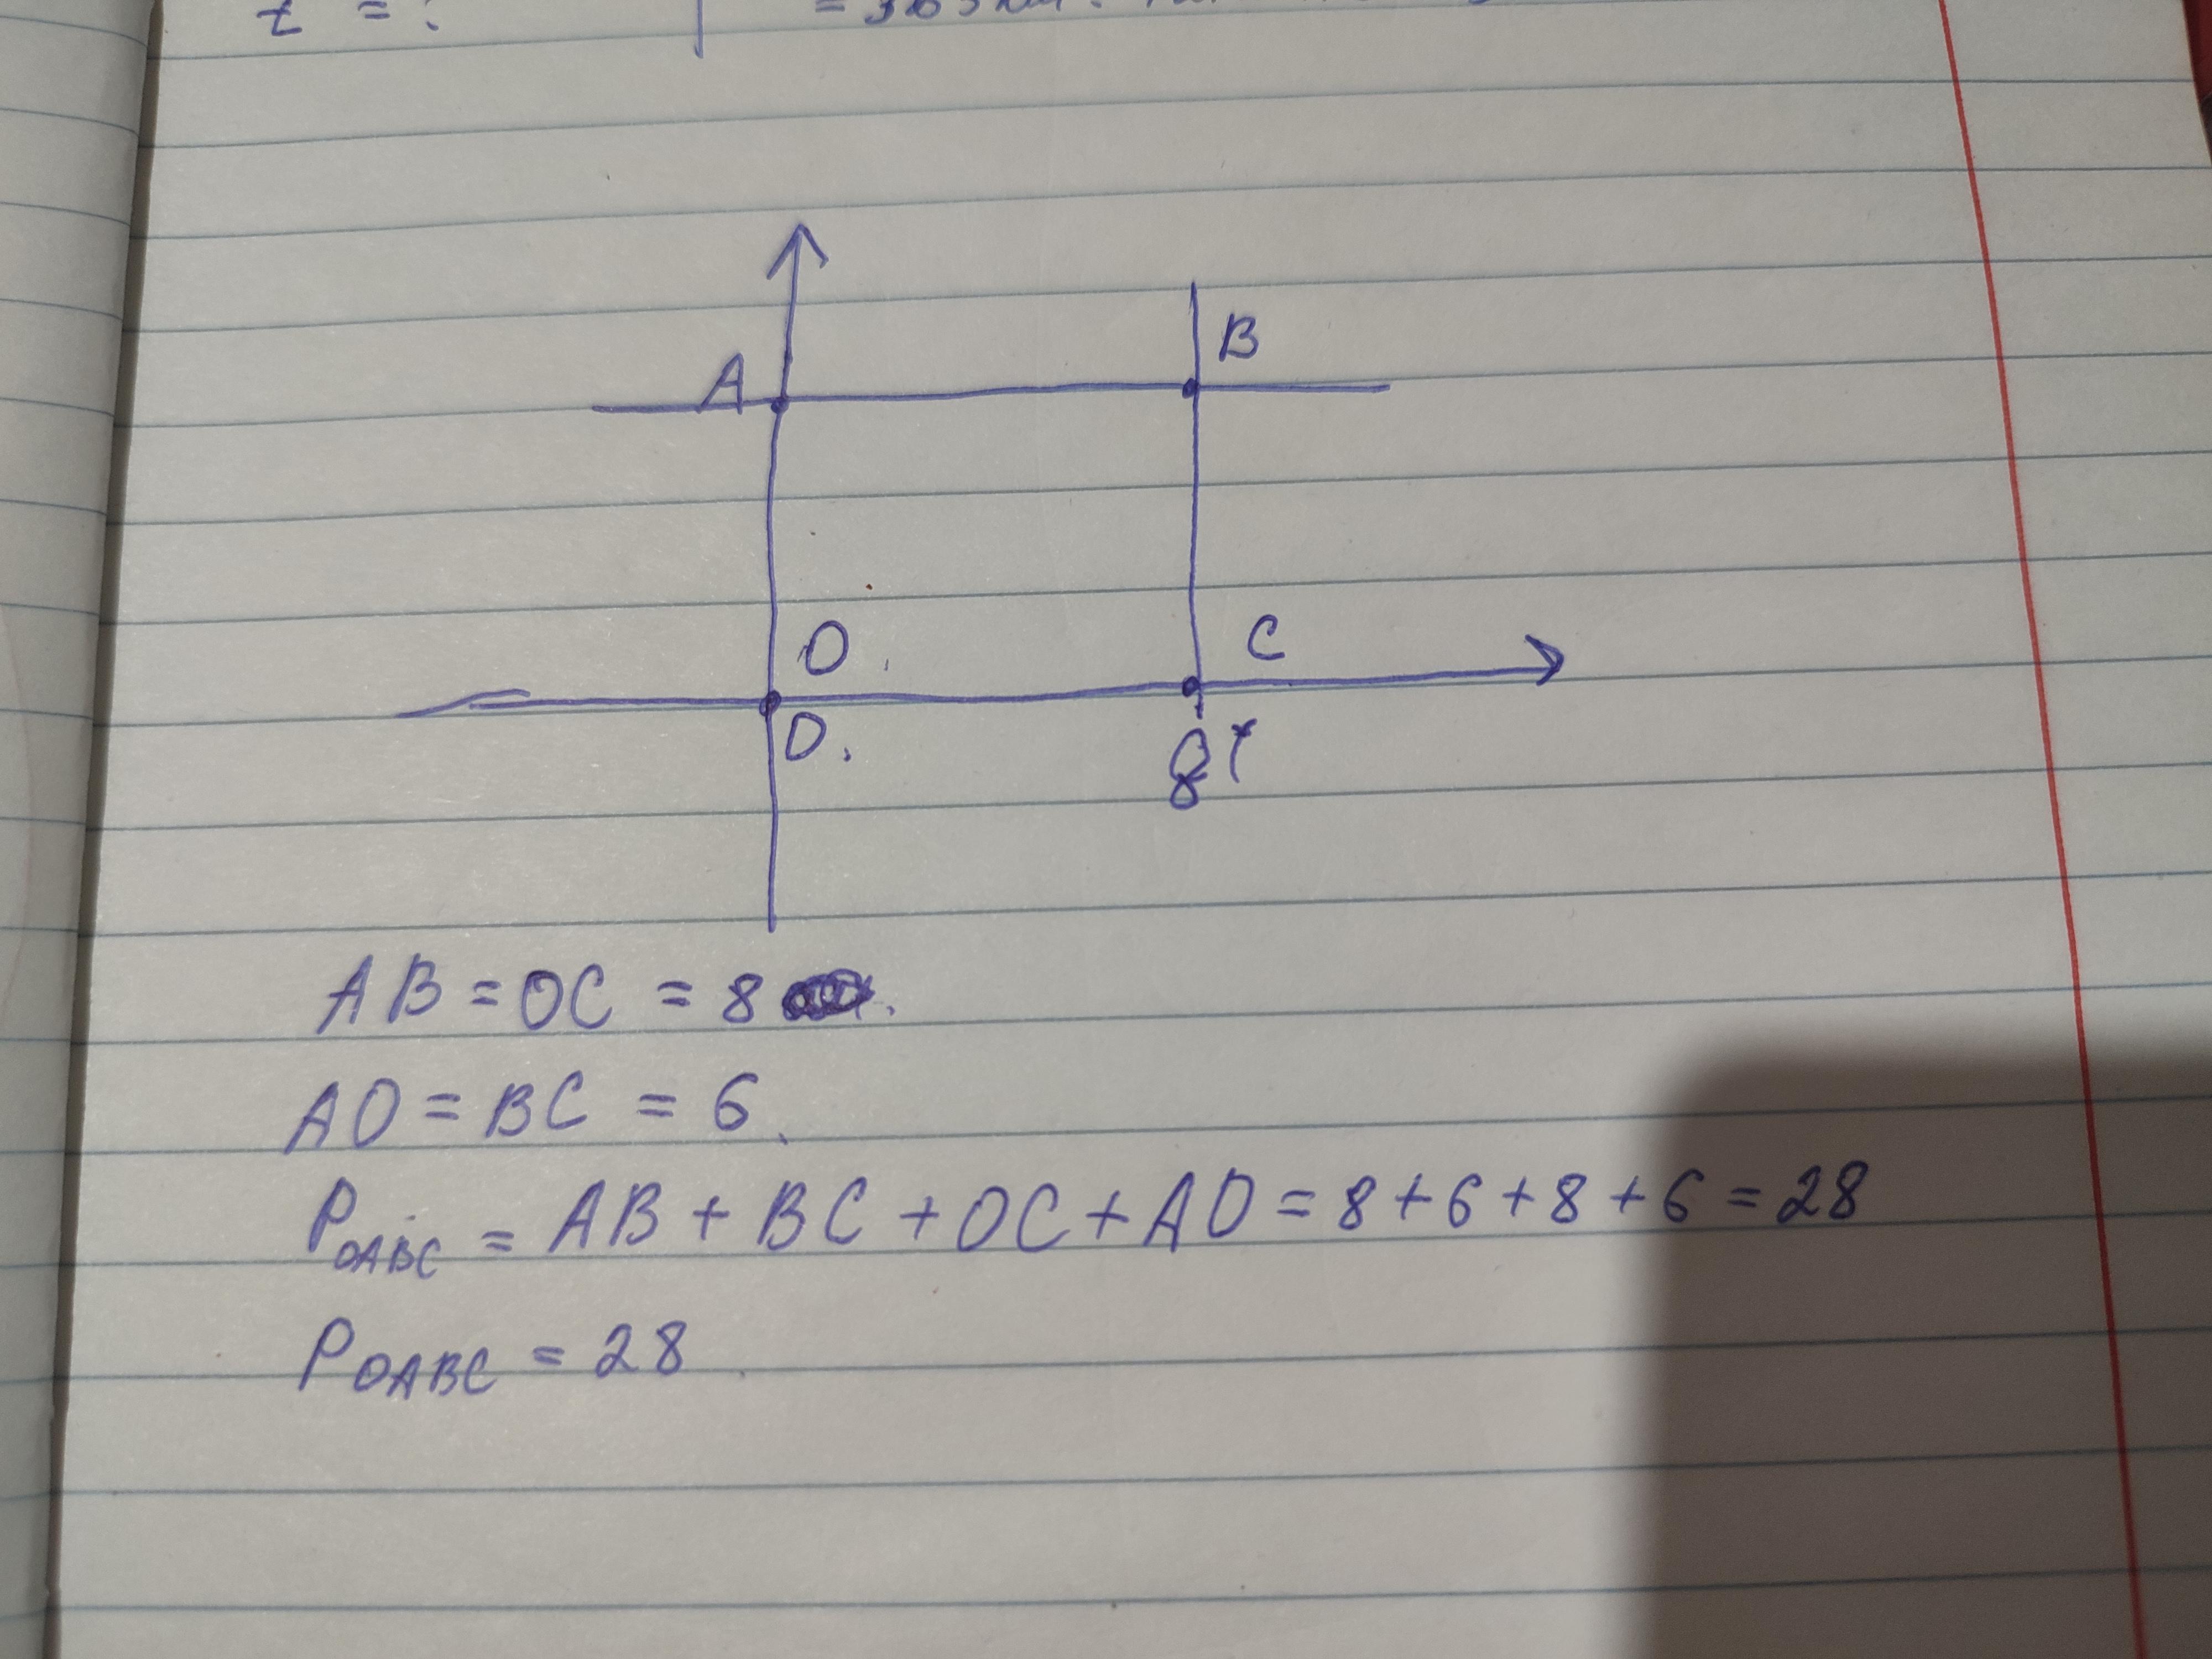 t = ?
A
B
O
C
O.
8
AB = OC = 8
AO = BC = 6
P_OABC = AB + BC + OC + AO = 8 + 6 + 8 + 6 = 28
P_OABC = 28